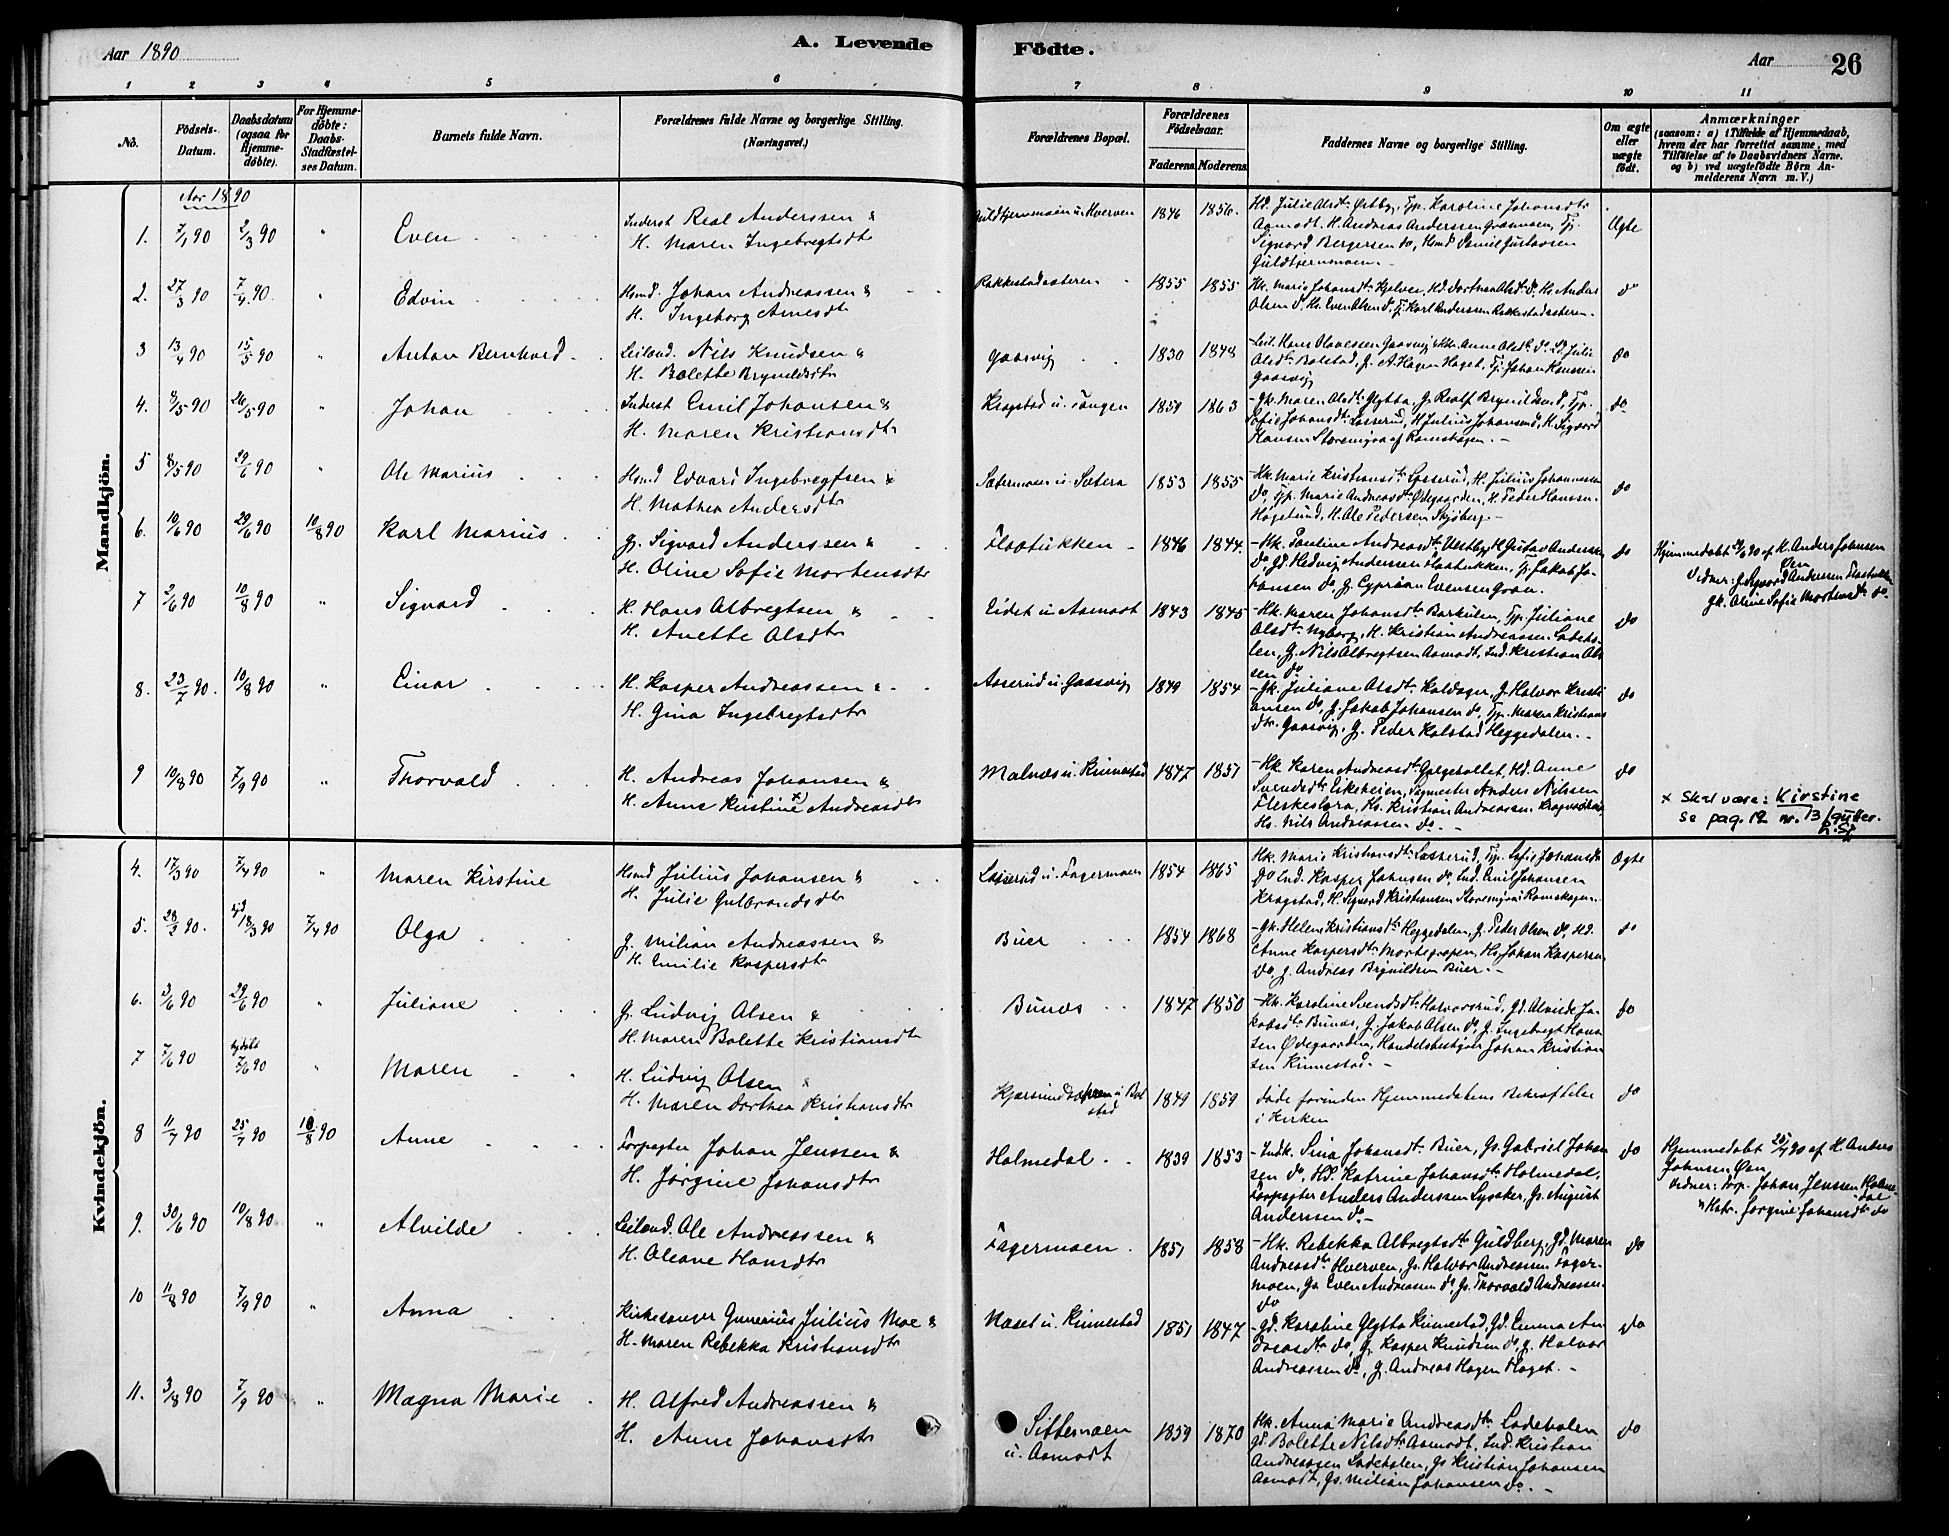 Aar 1890
A. Levende
Födte.
Aar
26
1 2 3 4 5 6 7 8 9 10 11
No.
Födsels-
Datum.
Daabsdatum
(ogsaa for
Hjemme-
döbte).
For Hjemme-
döbte:
Daabs-
Stadfæstel-
ses Datum.
Barnets fulde Navn.
Forældrenes fulde Navne og borgerlige Stilling.
(Næringsvei.)
Forældrenes Bopæl.
Forældrenes
Födselsaar.
Faderens Moderens
Faddernes Navne og borgerlige Stilling.
Om ægte
eller
uægte
födt.
Anmærkninger
(saasom: a) i Tilfælde af Hjemmedaab,
hvem der har forrettet samme, med
Tilföielse af to Daabsvidners Navne.
og b) ved uægtefödte Börn An-
melderens Navn m. V.)
Mandkjön.
Aar 1890
1. 7/1 90 2/3 90 " Even
Inderst Real Anderssen &
H. Maren Ingebregtsdtr
Guldtjernmoen u. Kverven 1846 1856.
Hd. Julie Olsdtr Ørtby, Tjp. Karoline Johansdtr
Aamodt. H. Andreas Anderssen Graamoen, Tj.
Sigvard Bergersen do, Hsmd Daniel Gustavsen
Guldtjernmoen.
Ægte
2. 27/3 90 7/4 90. " Edvin
Hsmd. Johan Andreassen &
H. Ingeborg Arnesdtr
Rakkestadsæteren 1855 1855
Hk. Marie Johansdtr Kjølven, Hd. Dorthea Olsdtr do. Hs. Anders
Olsen do, Hs. Even Olsen do, Tj. Karl Anderssen Rakkestadsæteren.
do
3 13/4 90 15/5 90 " Anton Bernhard
Leiland. Nils Knudsen &
H. Bolette Brynildsdtr
Gaasvig 1830 1848
Leil. Hans Olavesen Gaasvig & Hk. Anne Olsdtr do. Ld. Julie
Olsdtr Bolstad, g. A. Hagen Haget, Tj. Johan Hanssen
Gaasvig
do
4. 8/5 90 26/5 90 " Johan
Inderst Emil Johansen &
H. Maren Kristiansdtr
Kragstad u. Tangen 1859 1863
Gk. Maren Olsdtr Glytta, G. Roalf Brynildsen do, Tjp.
Sofie Johansdtr Lasserud, H. Julius Johansen do, H. Sigvard
Hansen Storemyra af Romskogen.
do
5 8/5 90 29/6 90 " Ole Marius
Hsmd Edvard Ingebregtsen &
H. Mathea Andersdtr
Sætermoen u. Sætera 1853 1855
Hk. Marie Kristiansdtr Lasserud, H. Julius Johannessen
do, Tjp. Marie Andreasdtr Ødegaarden, H. Peder Hansen
Høgelund, H. Ole Pedersen Skjøberg
do
6. 10/6 90 29/6 90 10/8 90 Karl Marius
g. Sigvard Anderssen &
H. Oline Sofie Mortensdtr
Flaatukken 1846 1844.
Hk. Pauline Andreasdtr Vestby, H. Gustav Anderssen
do, gd. Hedvig Anderssen Flaatukken, Tj. Jakob Jo-
hansen do, g. Cyprian Evensen Gran.
do
Hjemmedøbt 29/6 90 af K. Anders Johnsen
Øen
Vidner: g. Sigvard Anderssen Flaatukken
gk. Oline Sofie Mortensdtr do.
7 2/6 90 10/8 90 " Sigvard
H. Hans Albregtsen &
H. Anette Olsdtr
Eidet u. Aamodt 1843 1845
Hk. Maren Johansdtr Barkulen, Tjp. Juliane
Olsdtr Nyborg, H. Kristian Andreassen Ladeho-
len, G. Nils Albregtsen Aamodt, Ind. Kristian Ol-
sen do
do
8. 23/7 90. 10/8 90 " Einar
H. Kasper Andreassen &
H. Gina Ingebregtsdtr
Aaserud u. Gaasvig 1849 1854
Gk. Juliane Olsdtr Kaldager, g. Halvor Kristi-
ansen do, g. Jakob Johansen do, Tjp. Maren Kristians-
dtr Gaasvig, g. Peder Kolstad Heggedalen.
do
9 10/8 90 7/9 90 " Thorvald
H. Andreas Johansen &
H. Anne Kristine x) Andreasdtr
Malnæs u. Kinnestad 1847 1851
Hk. Karen Andreasdtr Galgehollet, Hd. Anne
Svendsdtr Eikeheien, Sagmester Anders Nilssen
Fleskestøra, Hs. Kristian Andreassen Kragvedkas,
Hs. Nils Andreassen do
do
x Skal være: Kirstine
se pag. 12 nr. 13 /gutter.
Kvindekjön.
4. 17/3 90 7/4 90 " Maren Kirstine
Hsmd Julius Johansen &
H. Julie Gulbrandsdtr
Lasserud u. Fagermoen 1854 1865
Hk. Marie Kristiansdtr Lasserud, Tjp. Sofie Johansdtr
do Ind. Kasper Johnsen do, Ind. Emil Johansen
Kragstad, H. Sigvard Kristiansen Storemyra i Romskogen.
Ægte
5. 28/2 90. 18/3 90 7/4 90 Olga
g. Milian Andreassen &
H. Emilie Kaspersdtr
Buer 1854 1868
Gk. Helene Kristiansdtr Heggedalen, g. Peder Olsen do, Hd.
Anne Kaspersdtr Mortegropen, Hs. Johan Kaspersen
do, g. Andreas Brynildsen Buer.
do
6. 3/6 90 29/6 90 " Juliane
g. Ludvig Olsen &
H. Maren Bolette Kristiansdtr
Bunæs 1847 1850
Hk. Karoline Svendsdtr Halvorsrud, gd. Alvilde Ja-
kobsdtr Bunæs, g. Jakob Olsen do, g. Ingebregt Hans-
sen Ødegaarden, Handelsbestyrer Johan Kristian-
sen Kinnestad.
do
7 7/6 90 hjdøbt 7/6 90 " Maren
H. Ludvig Olsen &
H. Maren Dorthea Kristiansdtr
u. Bol-
stad 1849 1859
døde førinden Hjemmedaabens Bekræftelse
i Kirken
do
8 11/7 90 25/7 90 10/8 90 Anne
Forpagter Johan Jenssen &
H. Jørgine Johansdtr
Holmedal 1839 1853
Indk. Sina Johansdtr Buer, Gs. Gabriel Johan-
sen do, Hd. Katrine Johansdtr Holmedal,
Forpagter Anders Anderssen Lysaker, Gs. August
Anderssen do
do
Hjemmedøbt 25/7 90 af K. Anders
Johnsen Øen
Vidner: Forp. Johan Jenssen Holme-
dal
" Hstr. Jørgine Johansdtr do
9. 30/6 90 10/8 90 " Alvilde
Leiland. Ole Andreassen &
H. Oleane Hansdtr
Fagermoen 1851 1858
Hk. Rebekka Albregtsdtr Guldberg, gd. Maren
Andreasdtr Kverven, Gs. Halvor Andreassen Fager-
moen, Gs. Even Andreassen do, Gs. Thorvald Andreassen
do
do
10 11/8 90 7/9 90 " Anna
Kirkesanger Gunerius Julius Moe &
H. Maren Rebekka Kristiansdtr
Næset u. Kinnestad 1851 1847
Gd. Karoline Glytta Kinnestad, Gd. Emma An-
dreasdtr do, G. Kasper Knudsen do, g. Halvor
Andreassen do, g. Andreas Hagen Haget.
do
11. 3/8 90 7/9 90 " Magna Marie
H. Alfred Andreassen &
H. Anne Johansdtr
Siftemoen
u. Aamodt 1859 1870
Hk. Anna Marie Andreasdtr Ladeholen
gd. Bolette Nilsdtr Aamodt, Ind. Kristian
Andreassen Ladeholen, Gs. Kristian Johansen
Aamodt, Gs. Milian Johansen do.
do